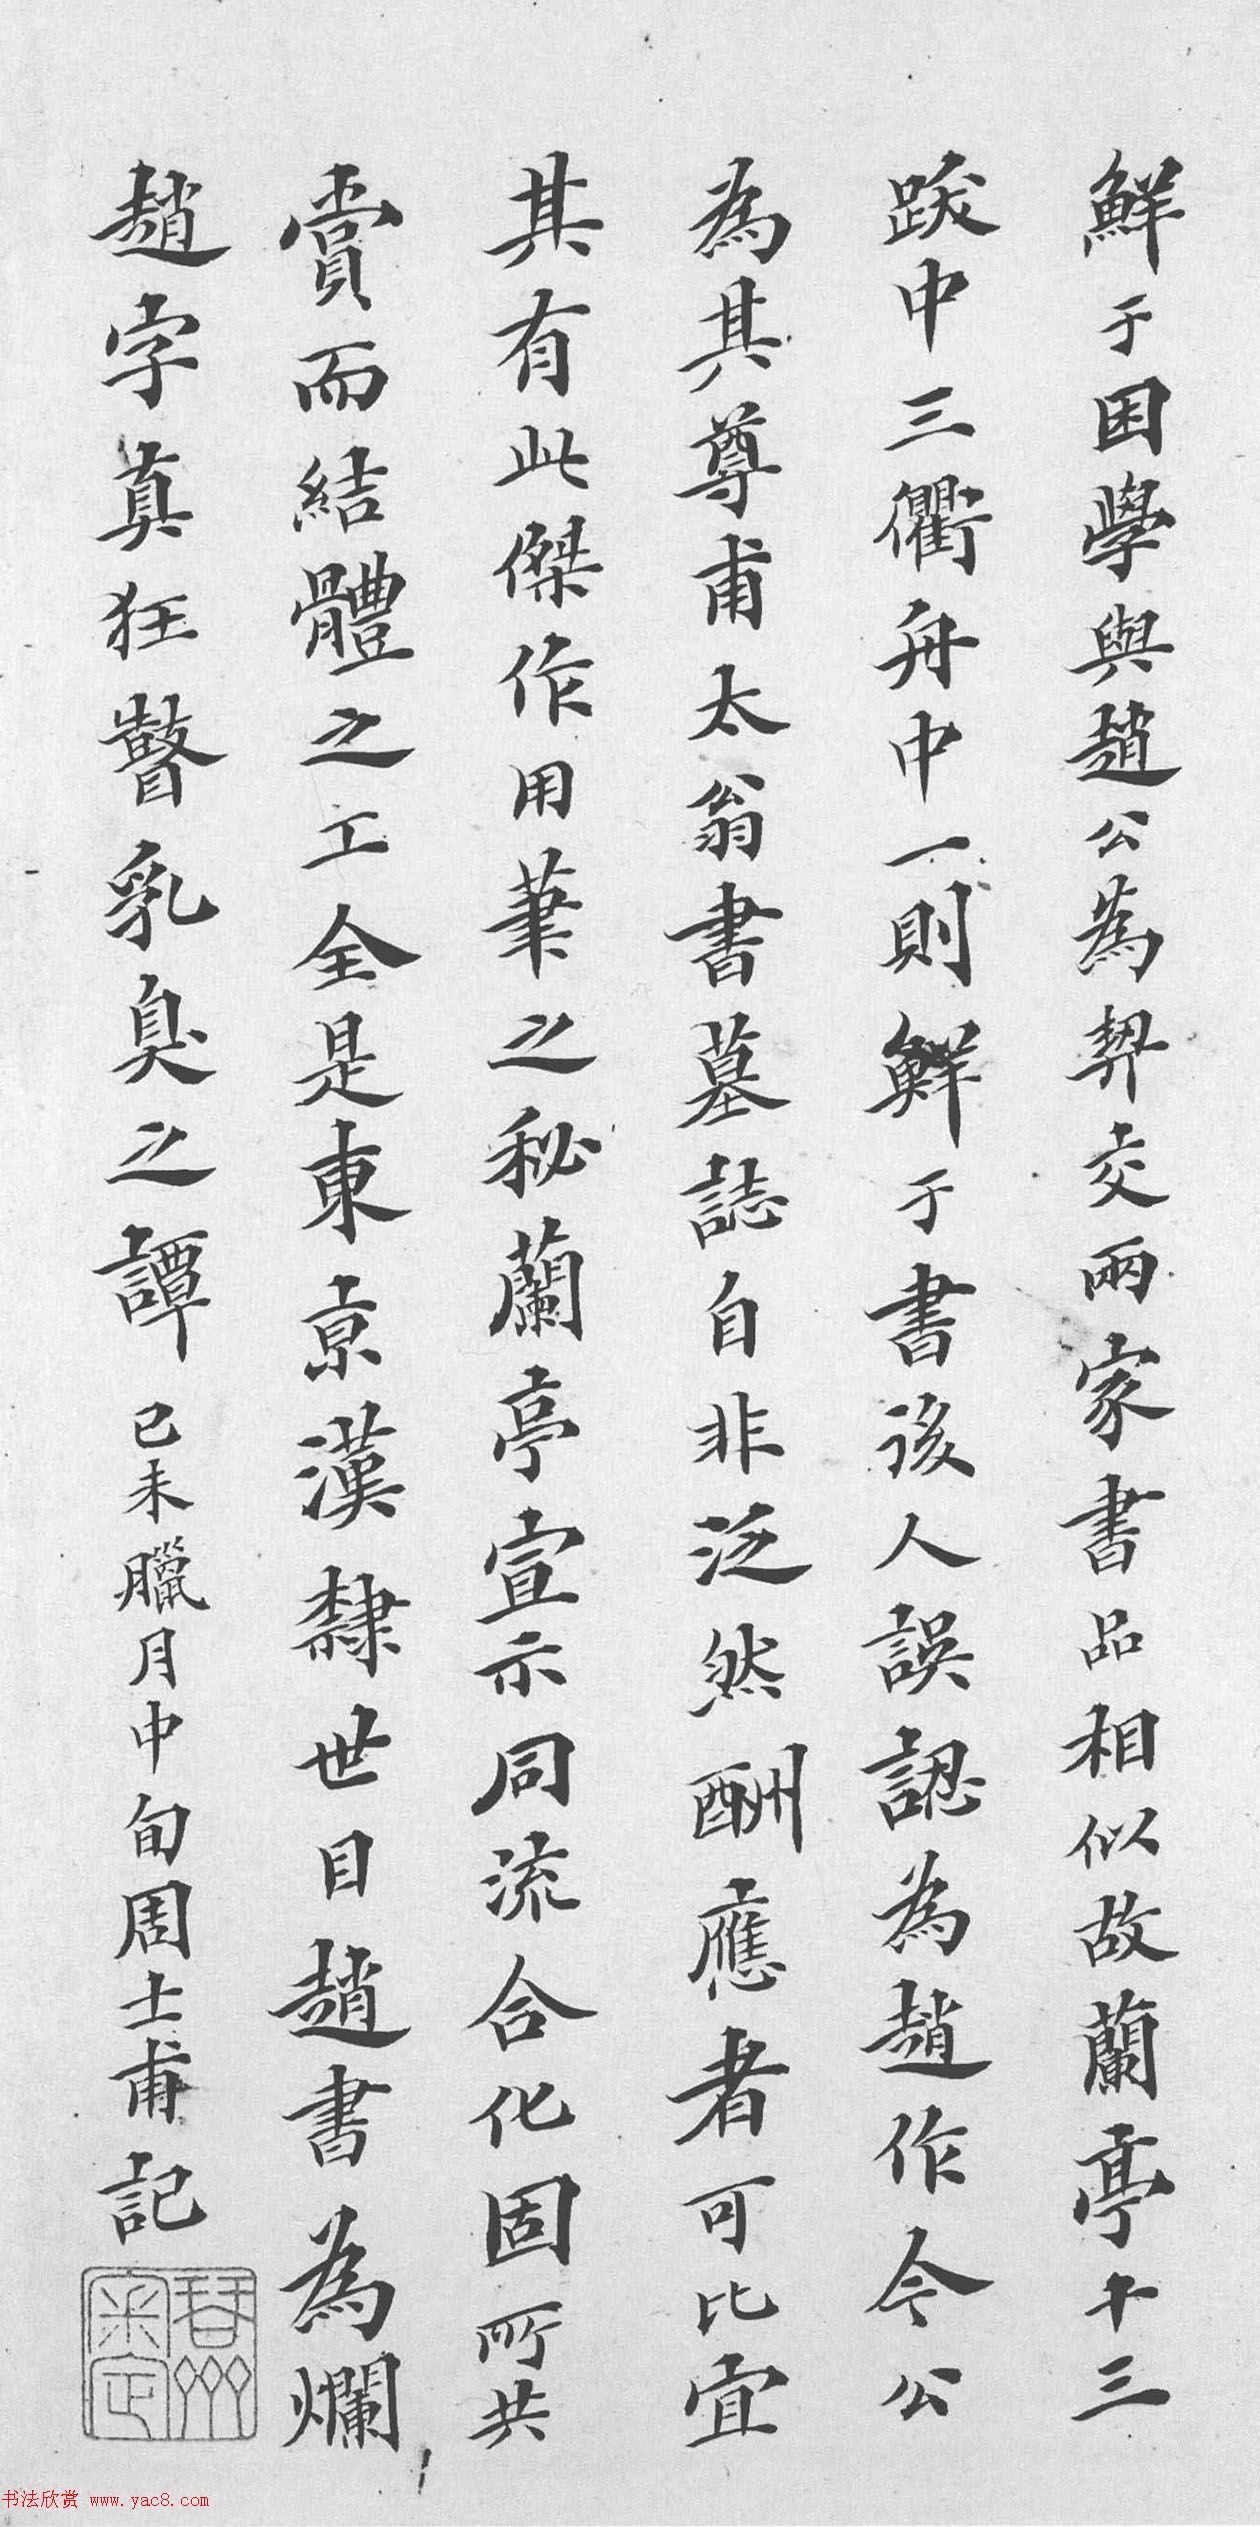 鮮于困學與趙公為契交兩家書品相似故蘭亭十三
跋中三衢舟中一則鮮于書後人誤認為趙作今公
為其尊甫太翁書墓誌自非泛然酬應者可比宜
其有此傑作用筆之秘蘭亭宣示同流合化固所共
賞而結體之工全是東京漢隸世目趙書為爛
趙字真狂瞽乳臭之譚 己未臘月中旬周士甫記
书法欣赏 www.yac8.com